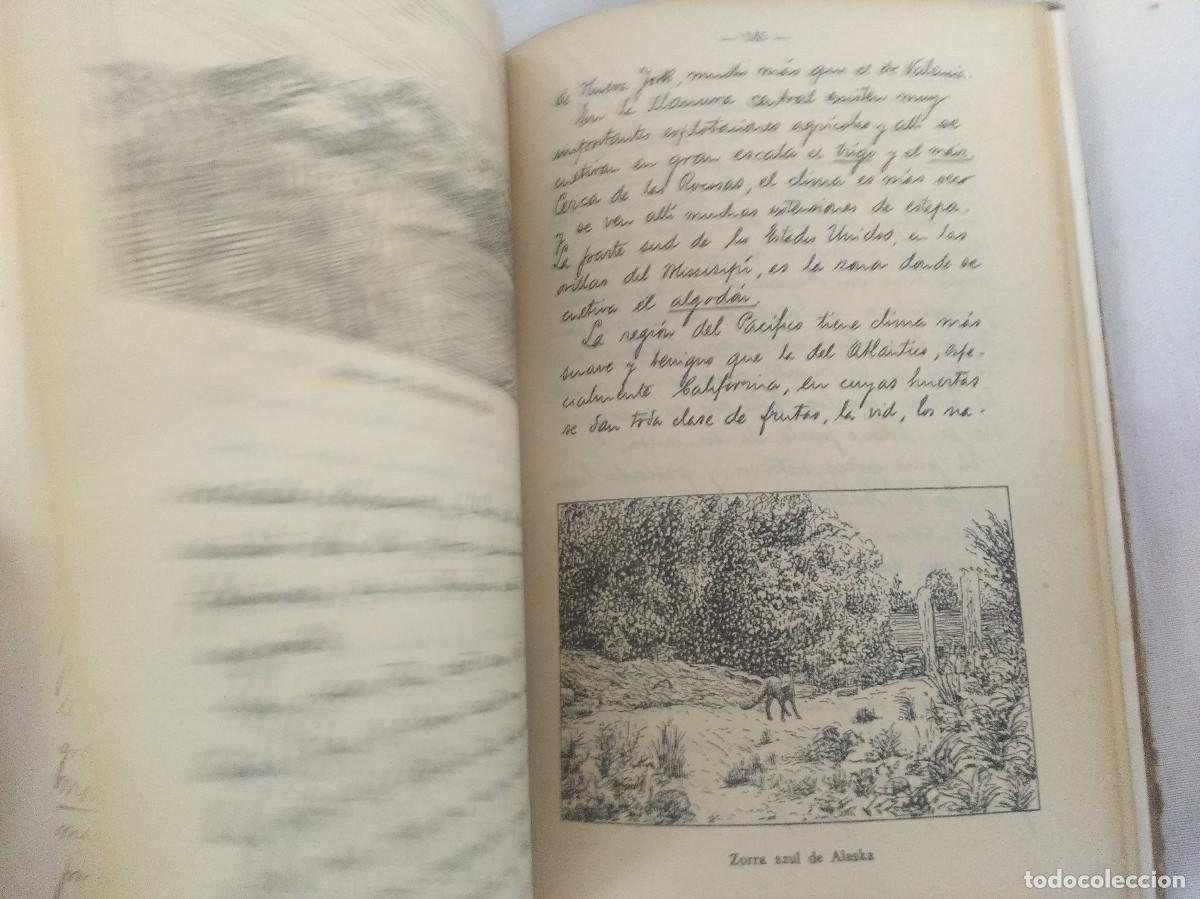 de Nueva York, mucho más que el de Valencia.
En la llanura central existen muy
importantes explotaciones agrícolas y allí se
cultivan en gran escala el trigo y el maíz.
Cerca de las Rocosas, el clima es más seco
y se ven allí muchas extensiones de estepa.
La parte sud de los Estados Unidos, en las
orillas del Missisipí, es la zona donde se
cultiva el algodón.
La región del Pacífico tiene clima más
suave y benigno que la del Atlántico, espe-
cialmente California, en cuyas huertas
se dan toda clase de frutas, la vid, los na-
Zorra azul de Alaska
todocoleccion